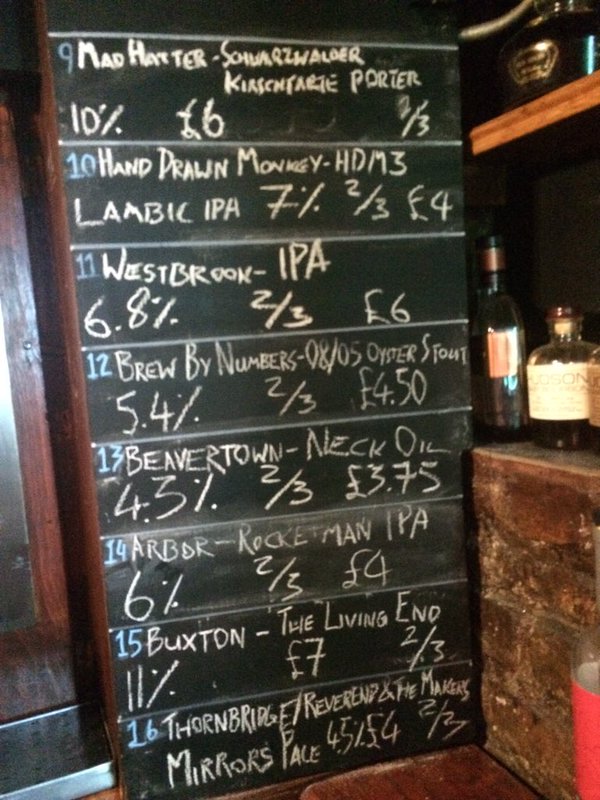 9 MAD HATTER - SCHWARZWALDER
KIRSCHTARTE PORTER
10% £6 2/3
10 HAND DRAWN MONKEY - HDM3
LAMBIC IPA 7% 2/3 £4
11 WESTBROOK - IPA
6.8% 2/3 £6
12 BREW BY NUMBERS - 08/05 OYSTER STOUT
5.4% 2/3 £4.50
13 BEAVERTOWN - NECK OIL
4.3% 2/3 £3.75
14 ARBOR - ROCKETMAN IPA
6% 2/3 £4
15 BUXTON - THE LIVING END
11% £7 2/3
16 THORNBRIDGE/REVEREND & THE MAKERS
MIRRORS PALE 4.5% £4 2/3